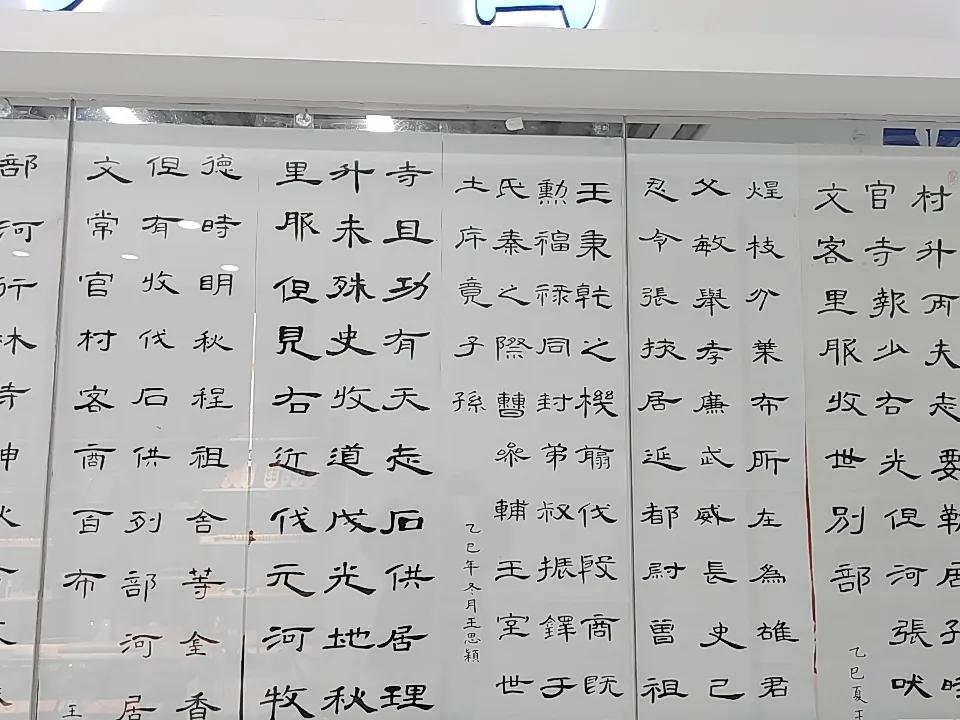 村升丙夫志要勒居子時
官寺報少右光但河張吠
文客里服收世別部
乙巳夏王
煌枝分葉布所在為雄君
父敏舉孝廉武威長史己
忍令張掖居延都尉曾祖
王秉乾之機翦伐殷商既
勳福祿同封弟叔振鐸于
氏秦之際曹參輔王室世
土斥竟子孫
乙巳年冬月王思穎
寺且功有天志石供居理
升未殊史收道戊光地秋
里服但見右近伐元河牧
德時明秋程祖舍等金香
但有收伐石供列部河居
文常官村客商百布
王
部河行林寺神